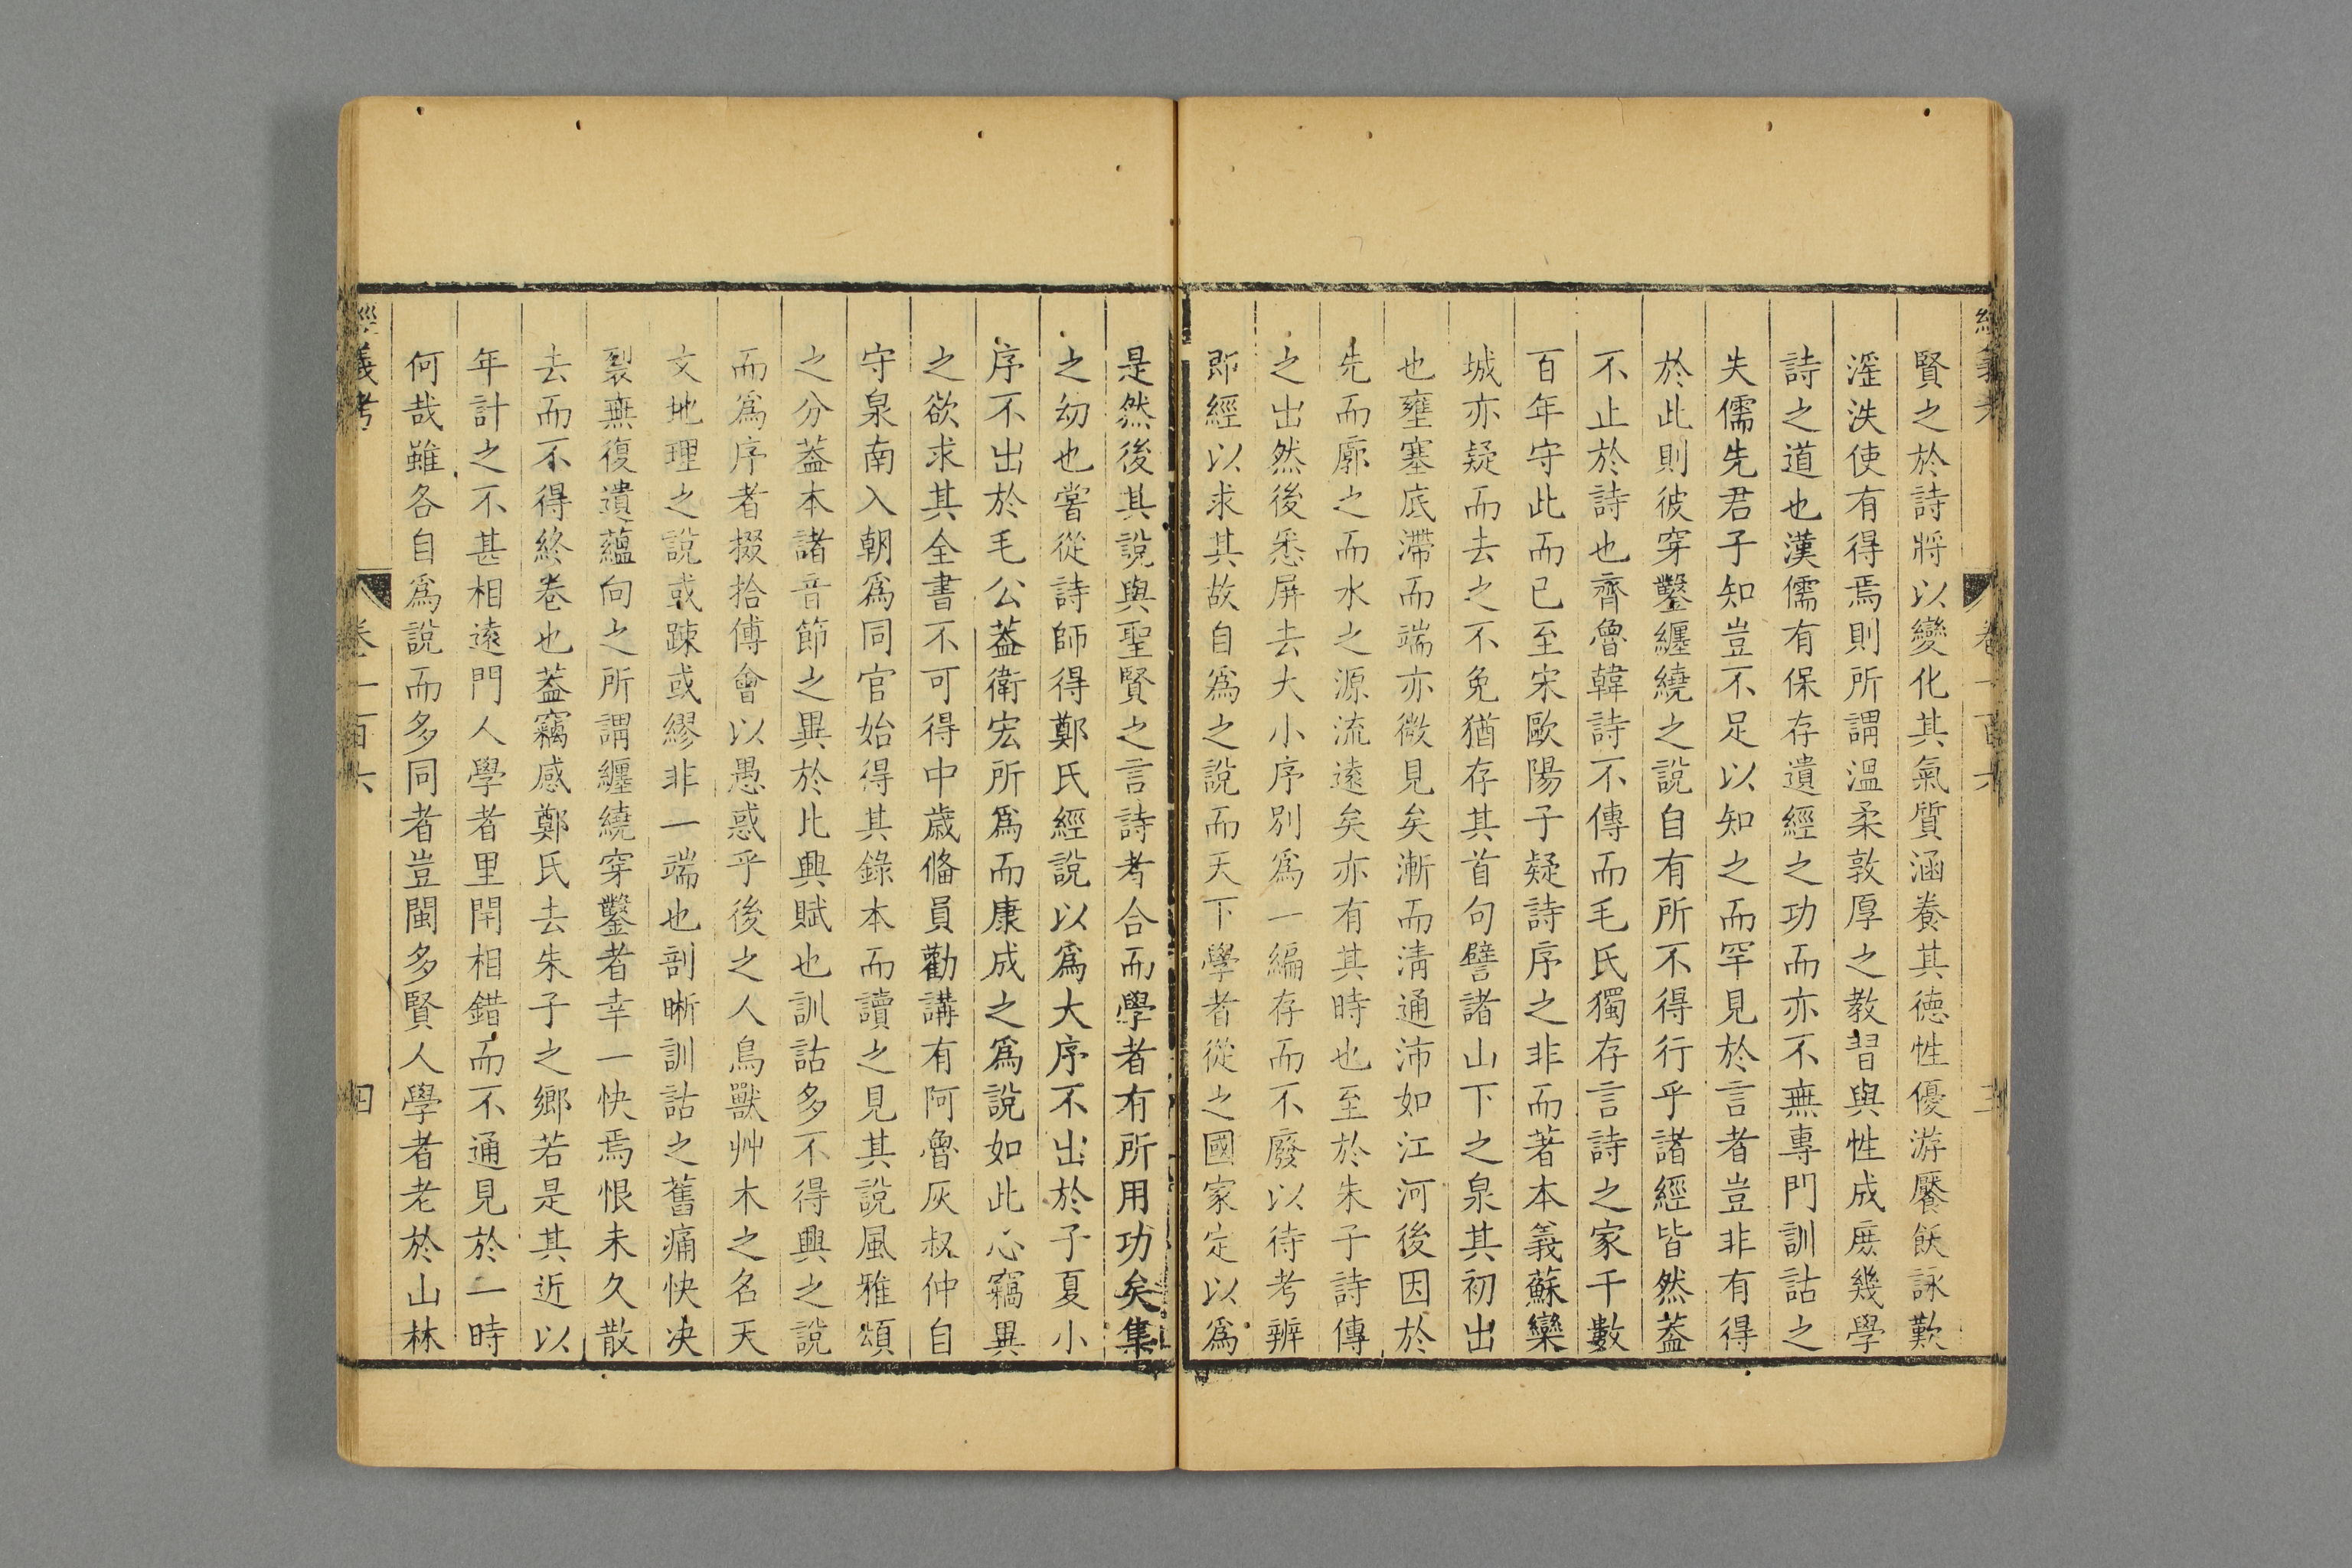 經義考 卷一百六 三
賢之於詩將以變化其氣質涵養其德性優游饜飫詠歎
滛泆使有得焉則所謂溫柔敦厚之教習與性成庶幾學
詩之道也漢儒有保存遺經之功而亦不無專門訓詁之
失儒先君子知豈不足以知之而罕見於言者豈非有得
於此則彼穿鑿纒繞之說自有所不得行乎諸經皆然葢
不止於詩也齊魯韓詩不傳而毛氏獨存言詩之家千數
百年守此而已至宋歐陽子疑詩序之非而著本義蘇欒
城亦疑而去之不免猶存其首句譬諸山下之泉其初出
也壅塞底滯而端亦微見矣漸而清通沛如江河後因於
先而廓之而水之源流遠矣亦有其時也至於朱子詩傳
之出然後悉屏去大小序別爲一編存而不廢以待考辨
即經以求其故自爲之說而天下學者從之國家定以爲
是然後其說與聖賢之言詩者合而學者有所用功矣集
之幼也嘗從詩師得鄭氏經說以爲大序不出於子夏小
序不出於毛公葢衛宏所爲而康成之爲說如此心竊異
之欲求其全書不可得中歲偹員勸講有阿魯灰叔仲自
守泉南入朝爲同官始得其錄本而讀之見其說風雅頌
之分葢本諸音節之異於比興賦也訓詁多不得興之說
而爲序者掇拾傅會以愚惑乎後之人鳥獸艸木之名天
文地理之說或踈或繆非一端也剖晰訓詁之舊痛快决
裂無復遺蘊向之所謂纒繞穿鑿者幸一快焉恨未久散
去而不得終卷也葢竊感鄭氏去朱子之鄉若是其近以
年計之不甚相遠門人學者里閈相錯而不通見於一時
何哉雖各自爲說而多同者豈閩多賢人學者老於山林
經義考 卷一百六 四